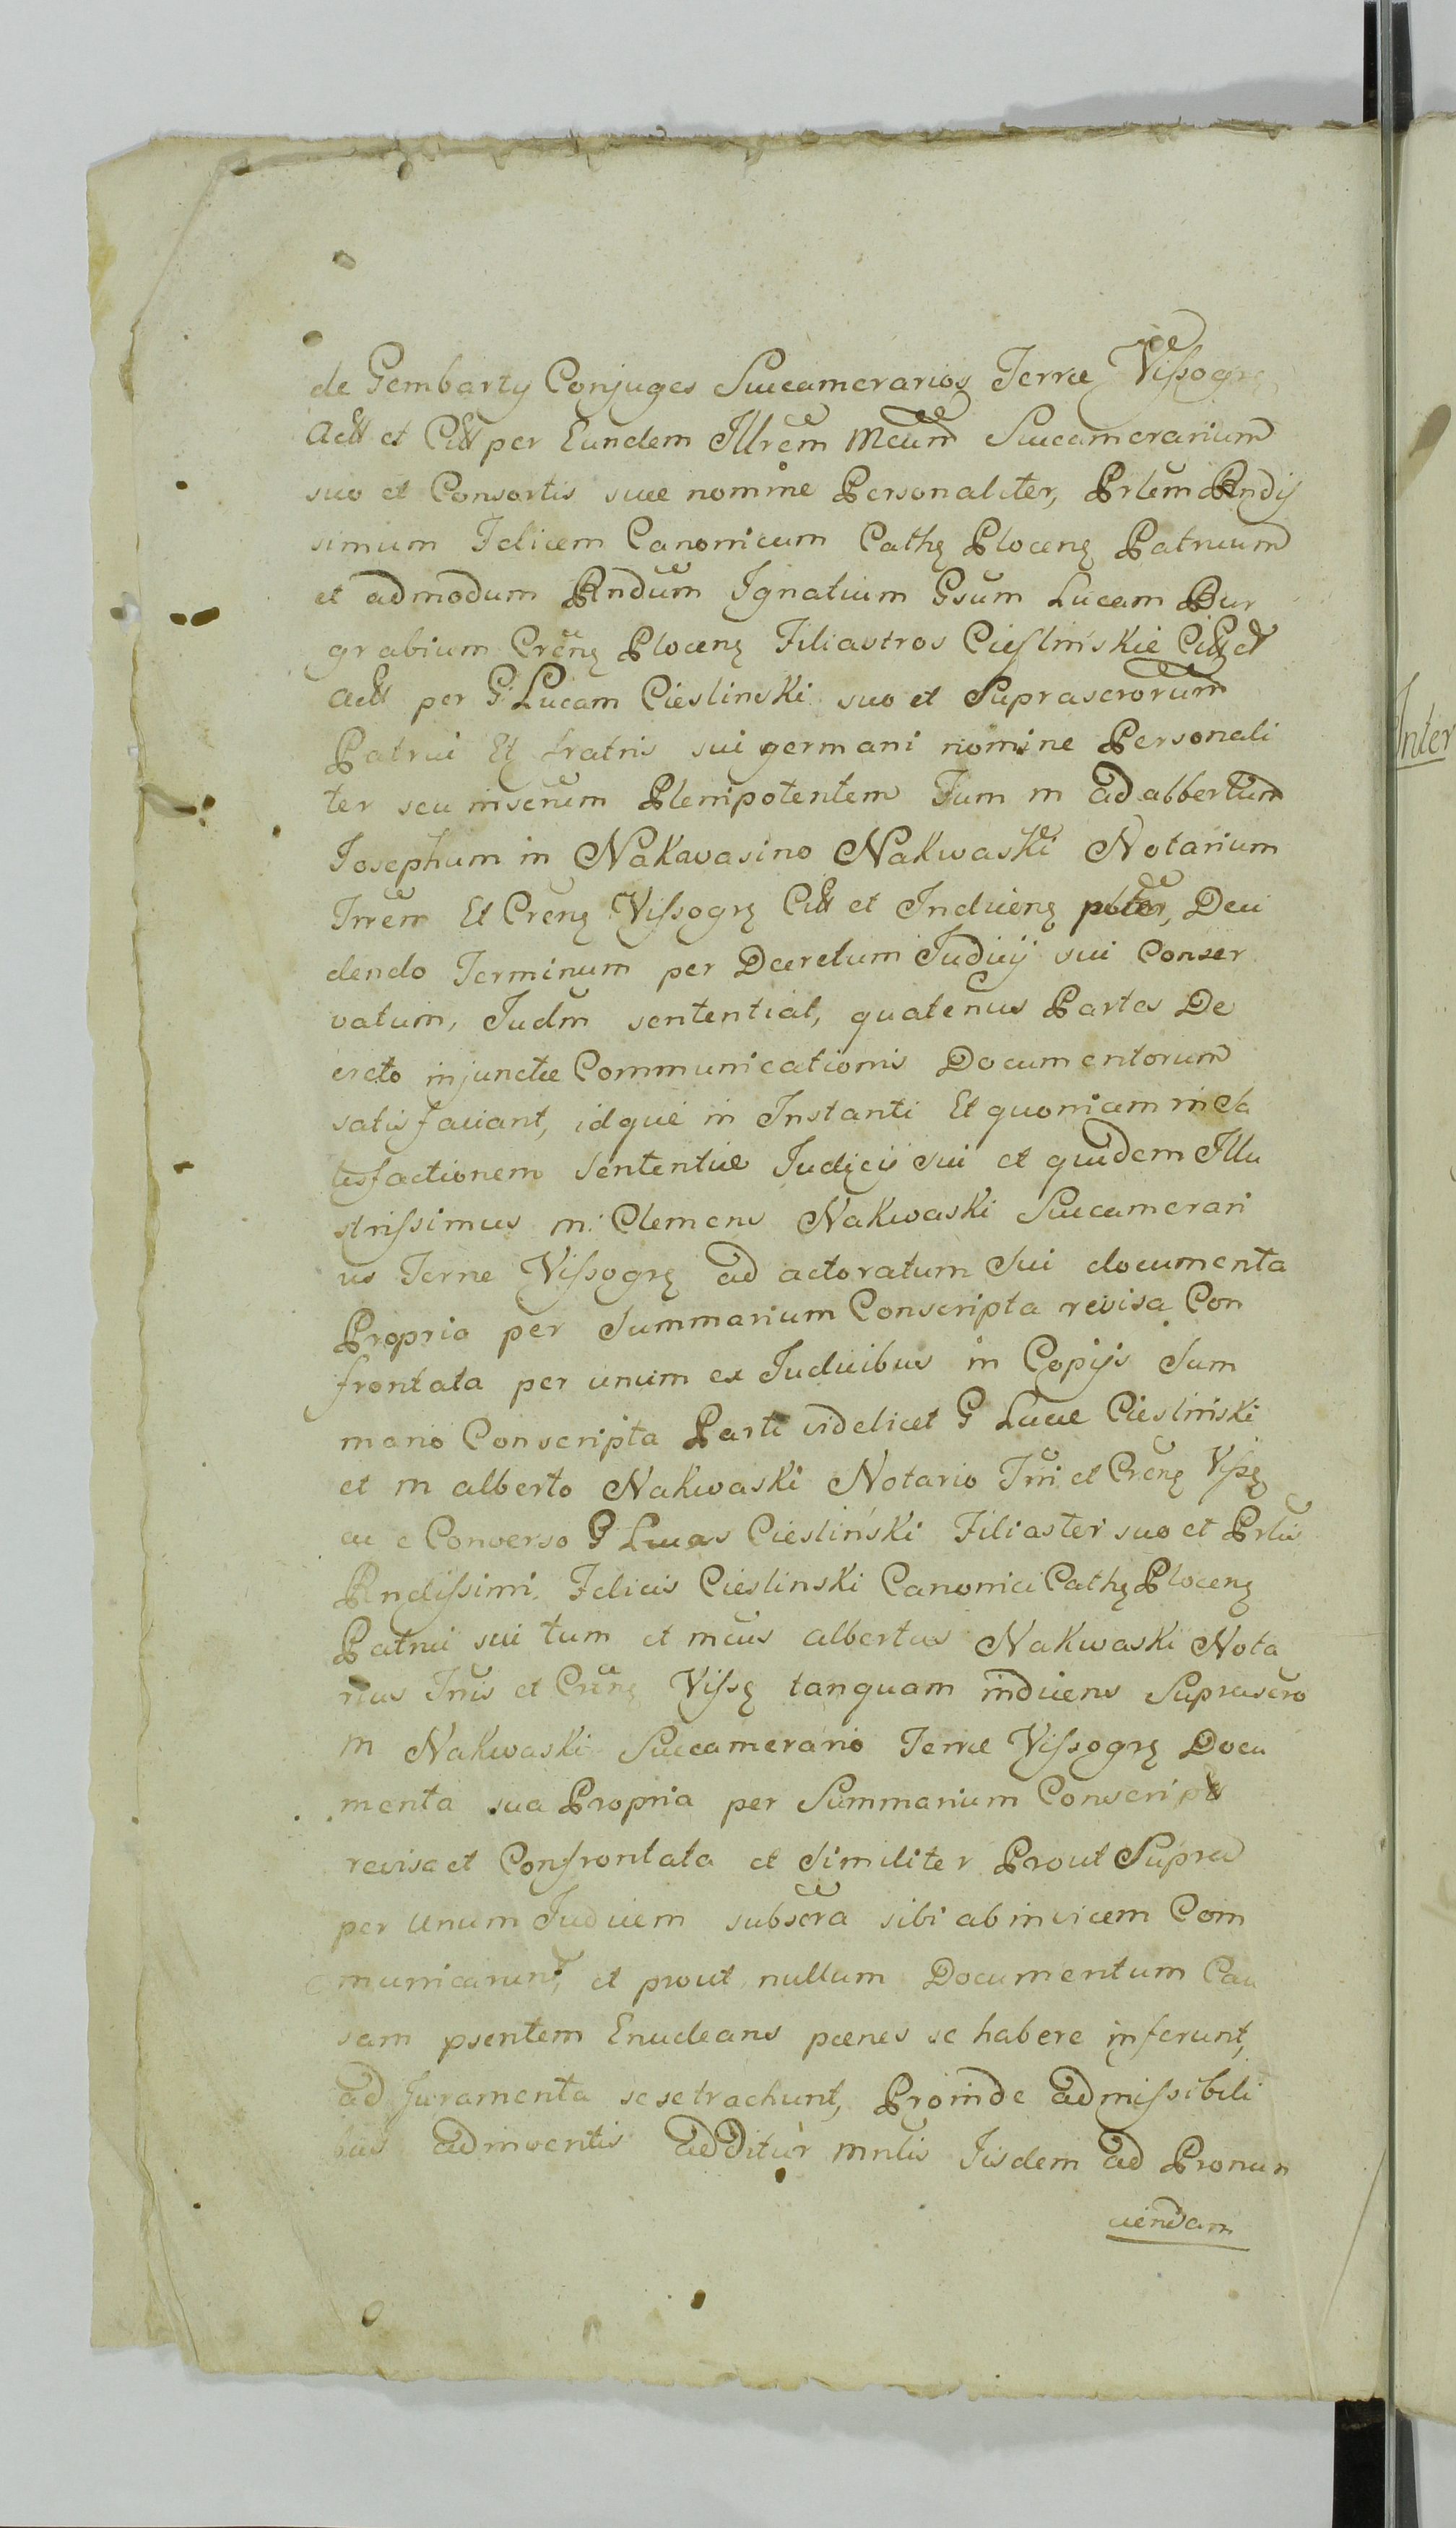 de Gembarty Conjuges Succamerarios Terræ Vissogrę
Act et Citt per Eundem Illrem Mcum Succamerarium
suo et Consortis suæ nomine Personaliter, Prlem Rndis
simum Felicem Canonicum Cathę Plocenę Patruum
et admodum Rndum Ignatium Gsum Lucam Bur
grabium Crenę Plocenę Filiastros Cieslińskie Citt et
Act per G Lucam Cieslinski suo et Suprascrorum
Patrui Et fratris sui germani nomine Personali
ter seu inserum Plenipotentem Tum m adalbertum
Josephum in Nakwasino Nakwaski Notarium
Trrem Et Crenę Vissogrę Citt et Inducenę plter, Deci
dendo Terminum per Decretum Judicij sui Conser
vatum, Judm sententiat, quatenus Partes De
creto injunctæ Communicationis Documentorum
satisfaciant, idque in Instanti Et quoniam in Sa
tisfactionem Sententiæ Judicij sui et quidem Illu
strissimus m: Clemens Nakwaski Succamerari
us Terræ Vissogrę ad actoratum Sui documenta
Propria per Summarium Conscripta revisa Con
frontata per unum ex Judicibus in Copijs Sum
mario Conscripta Parti videlicet G Lucæ Ciesliński
et m alberto Nakwaski Notario Trri et Crenę Vissę
ac e Converso G Lucas Ciesliński Filiaster suo et Prlis
Rndissimi Felicis Cieslinski Canonici Cathę Plocenę
Patrui sui tum et mcus albertus Nakwaski Nota
rius Trris et Crenę Vissę tanquam inducens Suprascro
m Nakwaski Succamerario Terræ Vissogrę Docu
menta sua Propria per Summarium Conscripta
revisa et Confrontata et Similiter Prout Supra
per Unum Judicem subscra sibi ab invicem Com
municarunt, et prout nullum Documentum Cau
sam psentem Enucleans pænes se habere inferunt,
ad Juramenta sese trachunt, Proinde admissibili
bus adinventis additur mnlis Iisdem ad Pronun
ciendam
Inter